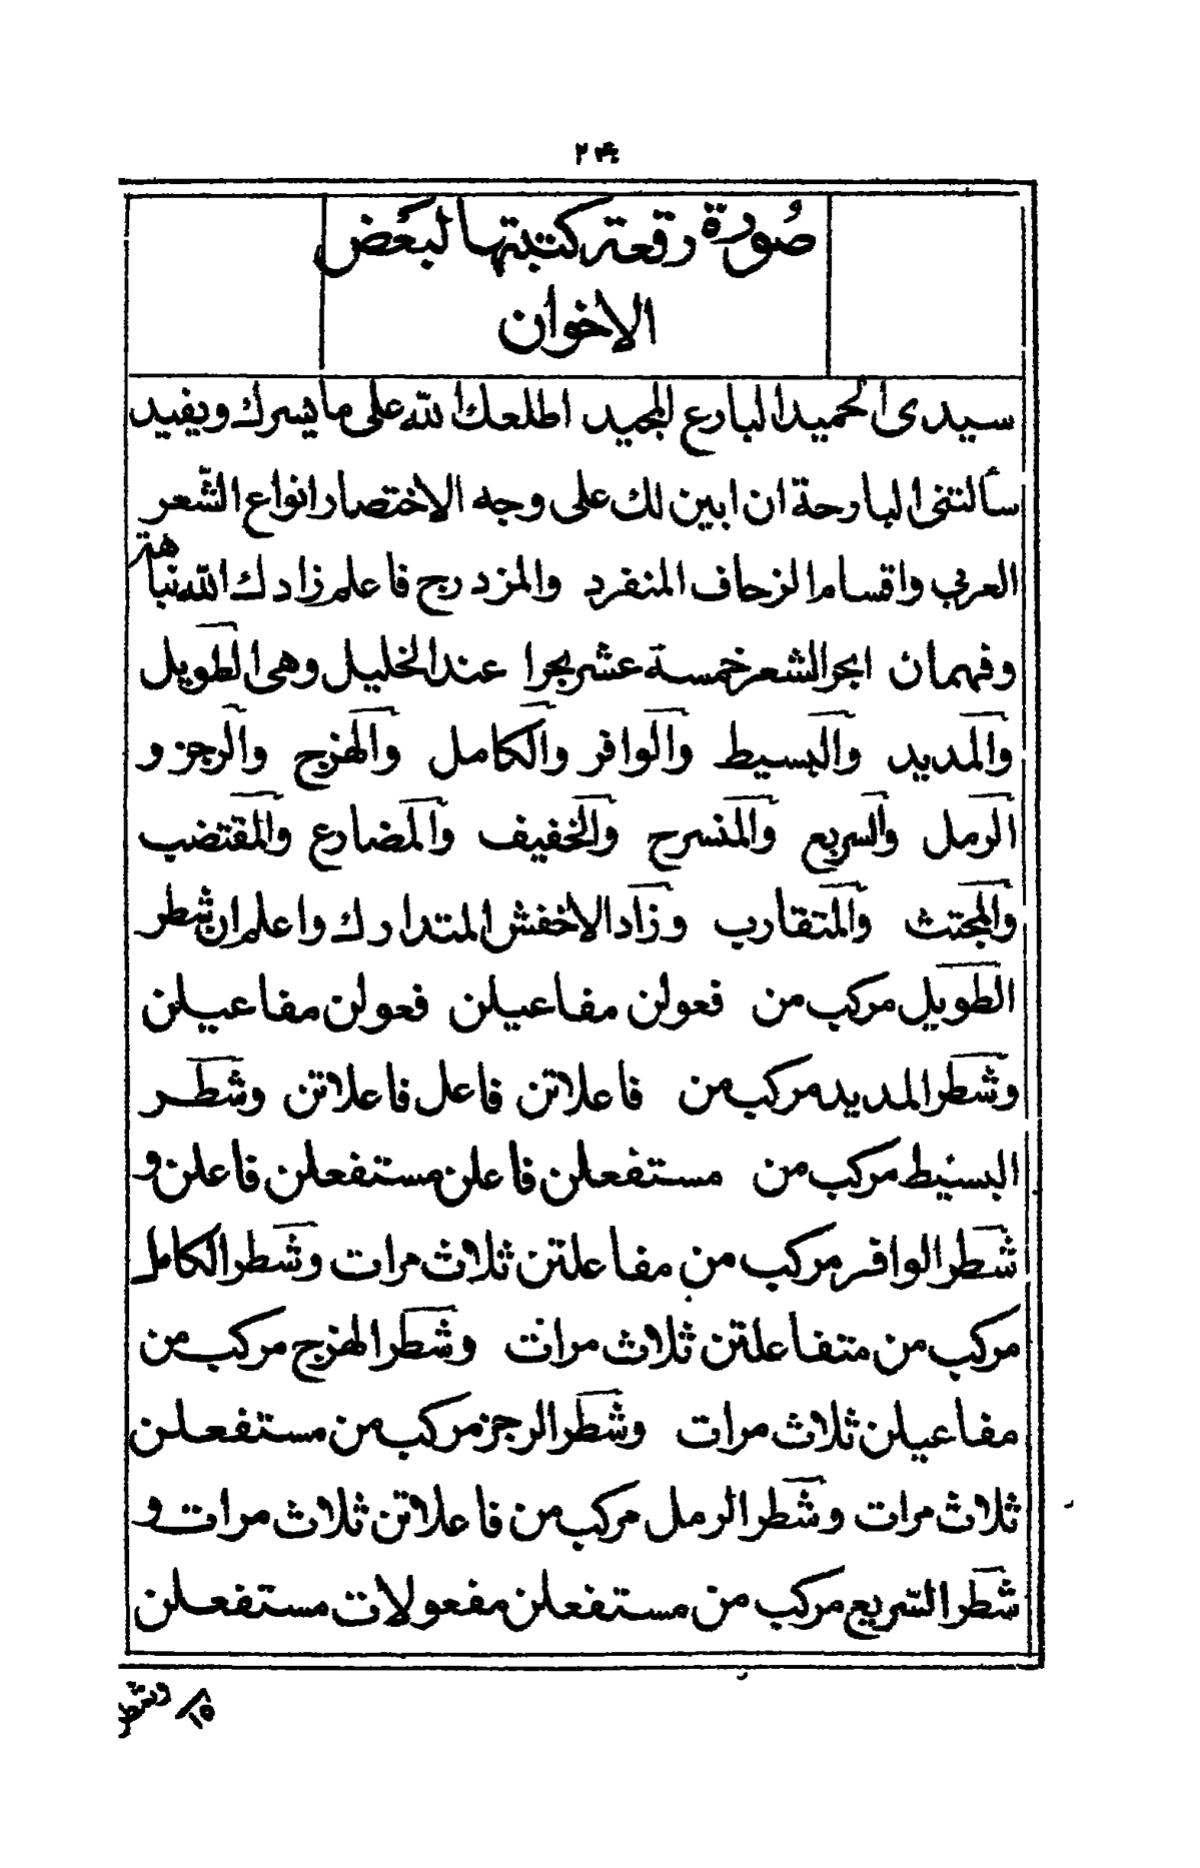 ٢٤
صُورة رقعة كتبتها لبعض
الاخوان
سيدى الحميد البارع المجيد اطلعك الله على ما يسرك ويفيد
سألتنى البارحة ان ابين لك على وجه الاختصار انواع الشّعر
العربي واقسام الزحاف المنفرد والمزدوج فاعلم زادك الله نباهة
وفهما ان ابحر الشعر خمسة عشر بحرا عند الخليل وهى الطويل
والمديد والبسيط والوافر والكامل والهزج والرجز و
الرمل والسريع والمنسرح والخفيف والمضارع والمقتضب
والمجتث والمتقارب وزاد الاخفش المتدارك واعلم ان شطر
الطويل مركب من فعولن مفاعيلن فعولن مفاعيلن
وشطر المديد مركب من فاعلاتن فاعل فاعلاتن وشطر
البسيط مركب من مستفعلن فاعلن مستفعلن فاعلن و
شطر الوافر مركب من مفاعلتن ثلاث مرات وشطر الكامل
مركب من متفاعلتن ثلاث مرات وشطر الهزج مركب من
مفاعيلن ثلاث مرات وشطر الرجز مركب من مستفعلن
ثلاث مرات وشطر الرمل مركب من فاعلاتن ثلاث مرات و
شطر السّريع مركب من مستفعلن مفعولات مستفعلن
١٥ وشطر